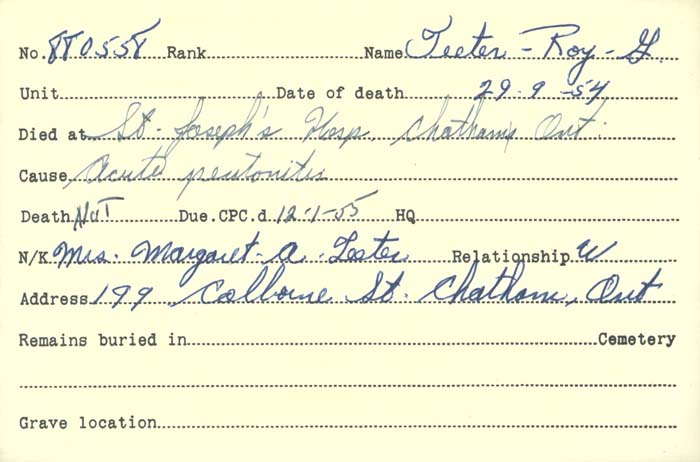 No. 880558 Rank Name Teeter - Roy - G.
Unit Date of death 29-9-54
Died at St. Joseph's Hosp. Chatham, Ont.
Cause Acute peritonitis
Death Not Due. CPC.d 12-1-55 HQ
N/K Mrs. Margaret A. Teeter Relationship W
Address 199 Colborne St. Chatham, Ont
Remains buried in Cemetery
Grave location